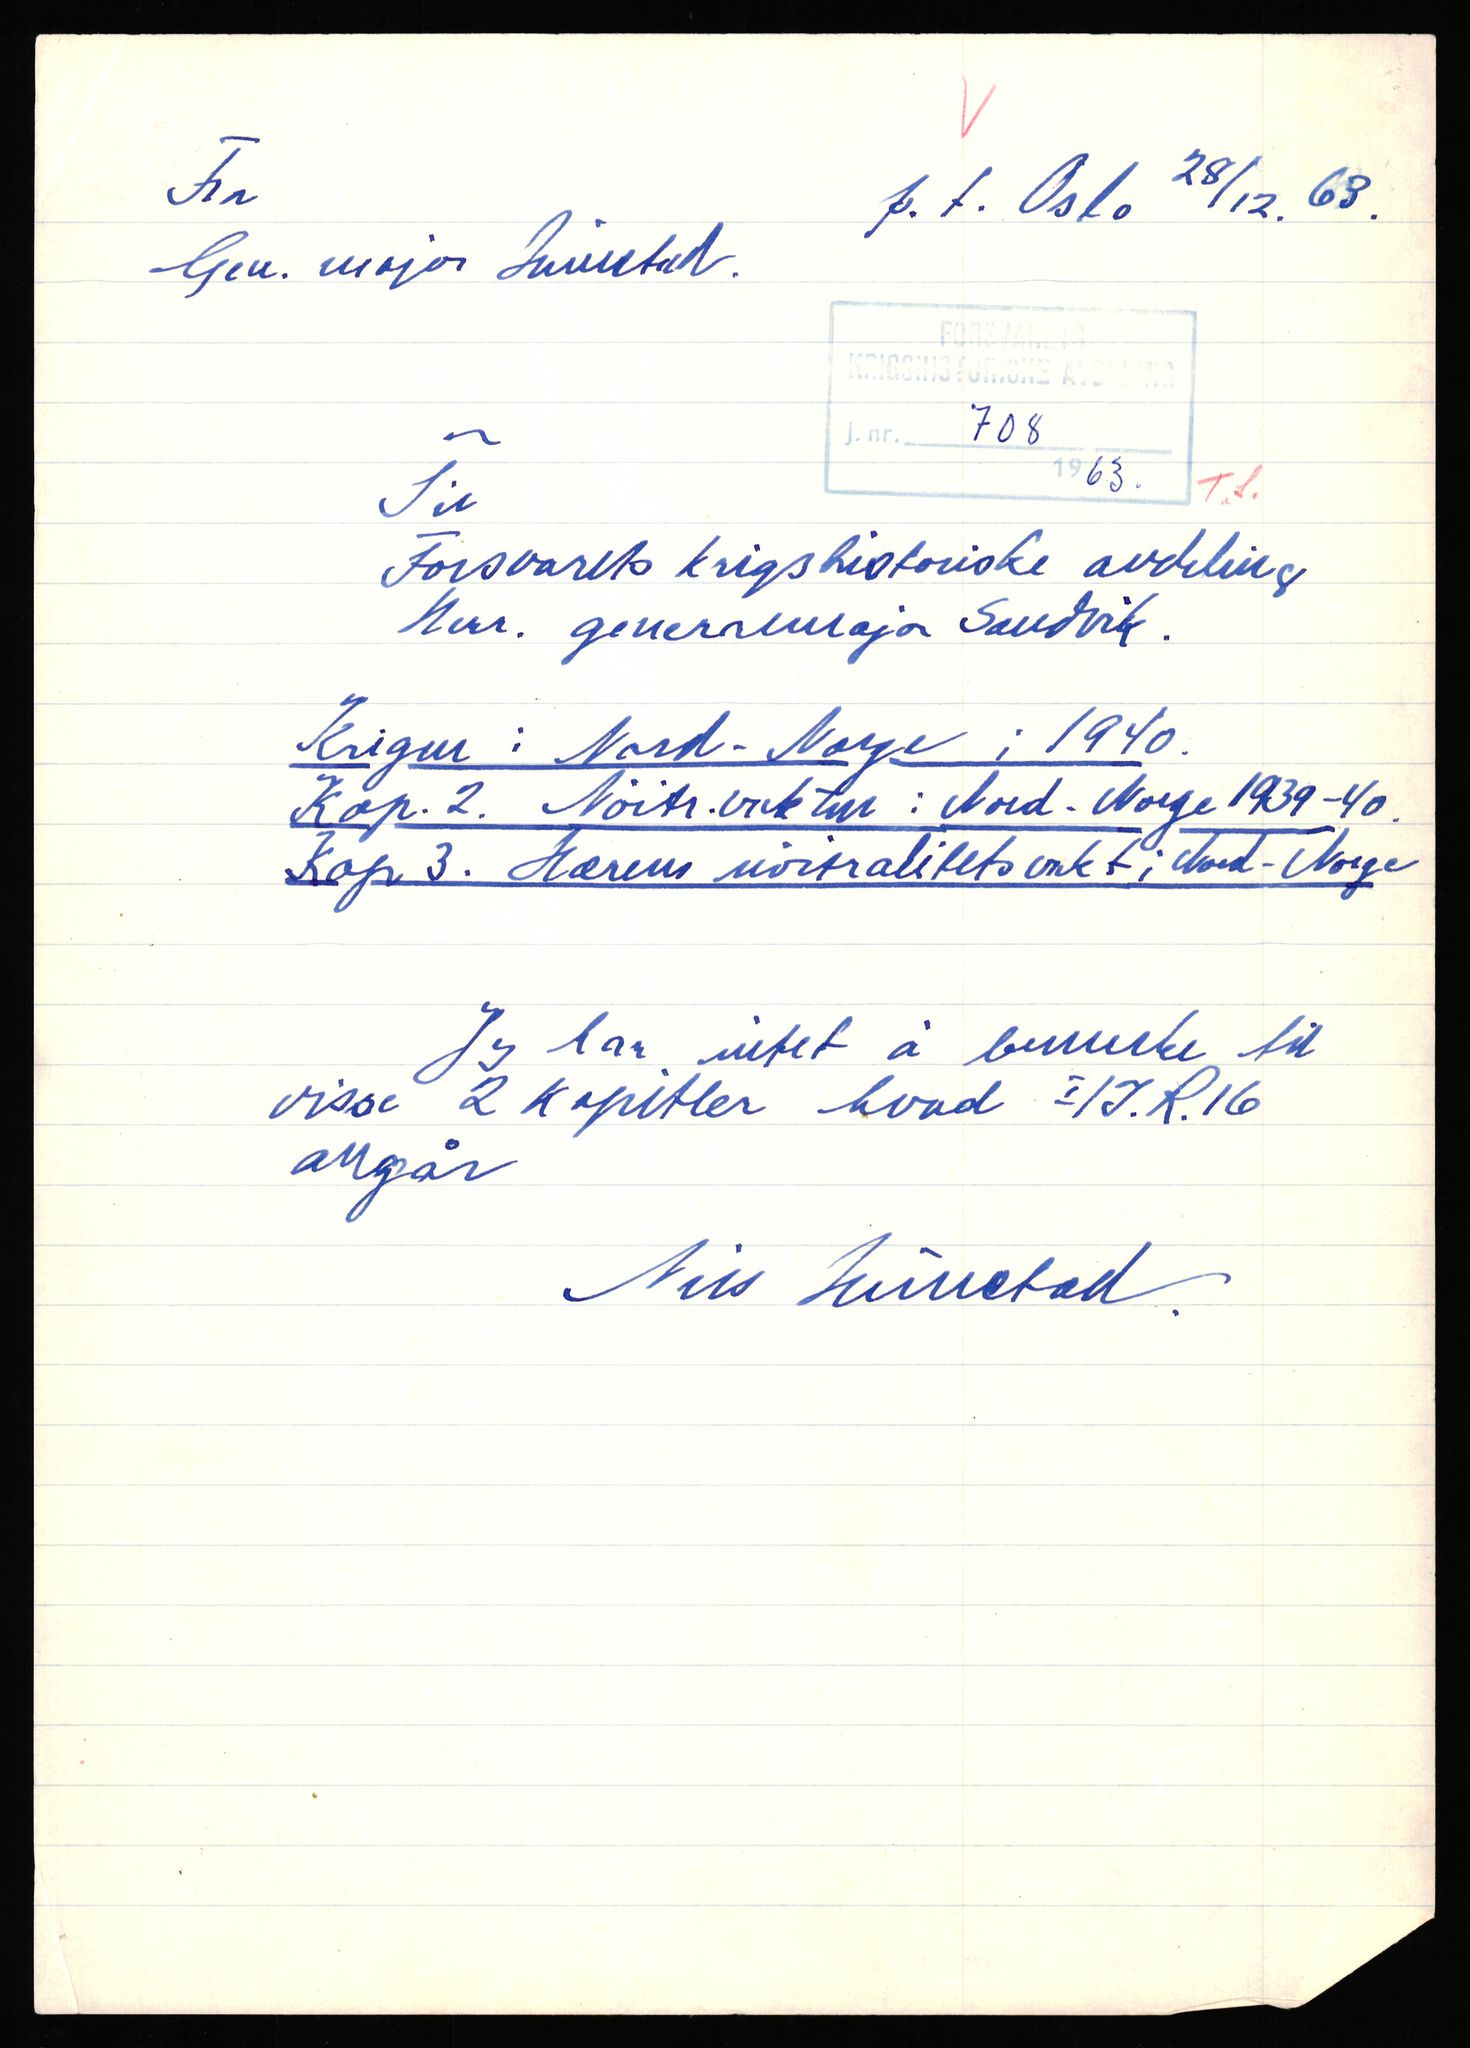 V
Fra
p. t. Oslo 28/12. 63.
Gen. major
FORSVARETS
KRIGSHISTORISKE AVDELING
J. nr. 708
1963.
T.S.
Til
Forsvarets krigshistoriske avdeling
Herr. generalmajor Sandvik.
Krigen i Nord-Norge i 1940.
Kap. 2. Nöitr.vakten i Nord-Norge 1939-40.
Kap 3. Hærens nöitralitetsvakt i Nord-Norge
Jeg har intet å bemerke til
disse 2 kapitler hvad I/I.R.16
angår
Nils